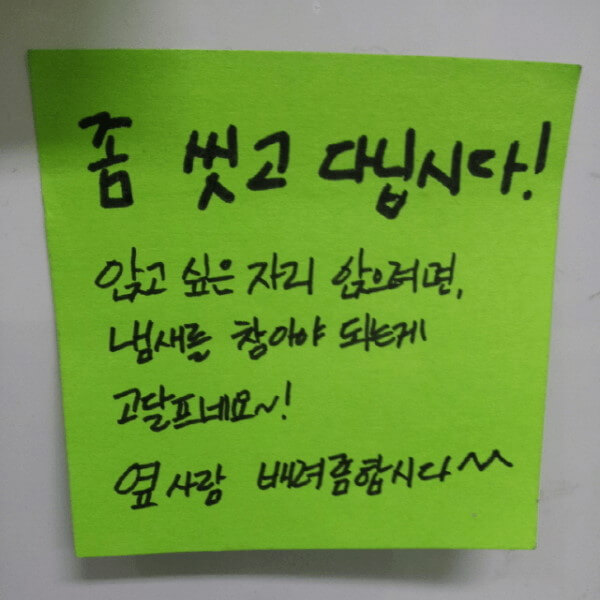 좀 씻고 다닙시다!
앉고 싶은 자리 앉으려면,
냄새를 참아야 되는게
고달프네요~!
옆사람 배려좀합시다~~